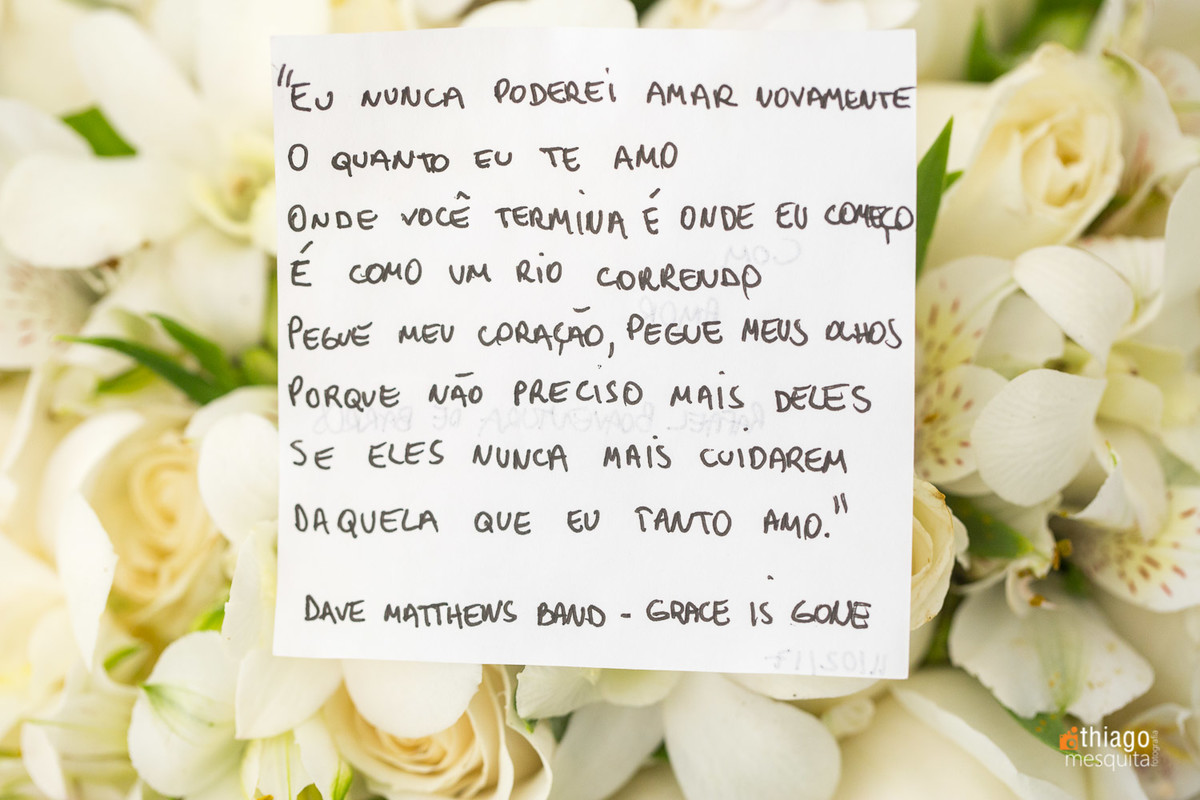 "EU NUNCA PODEREI AMAR NOVAMENTE
O QUANTO EU TE AMO
ONDE VOCÊ TERMINA É ONDE EU COMEÇO
É COMO UM RIO CORRENDO
PEGUE MEU CORAÇÃO, PEGUE MEUS OLHOS
PORQUE NÃO PRECISO MAIS DELES
SE ELES NUNCA MAIS CUIDAREM
DAQUELA QUE EU TANTO AMO."
DAVE MATTHEWS BAND - GRACE IS GONE
COM
AMOR
RAFAEL BOAVENTURA DE
11/02/17
thiago
mesquita
fotografia